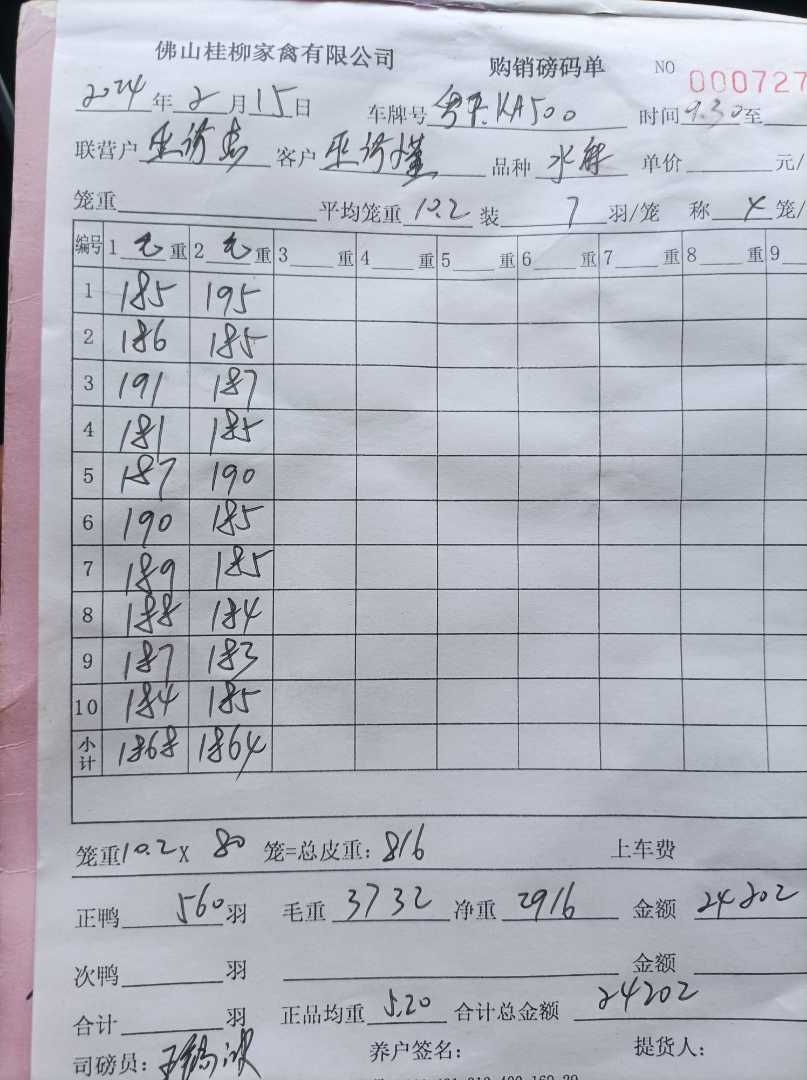 佛山桂柳家禽有限公司 购销磅码单 NO 000727
2024年2月15日 车牌号 KA500 时间9.30至
联营户 客户 品种 水 单价 元/
笼重 平均笼重10.2装7羽/笼 称4笼/
编号 1毛重 2毛重 3重 4重 5重 6重 7重 8重 9
1 185 195
2 186 185
3 191 187
4 181 185
5 187 190
6 190 185
7 189 185
8 188 184
9 187 183
10 184 185
小计 1868 1864
笼重10.2X 80 笼=总皮重: 816 上车费
正鸭560羽 毛重3732 净重2916 金额24202
次鸭 羽 金额
合计 羽 正品均重5.20 合计总金额24202
司磅员: 养户签名: 提货人: